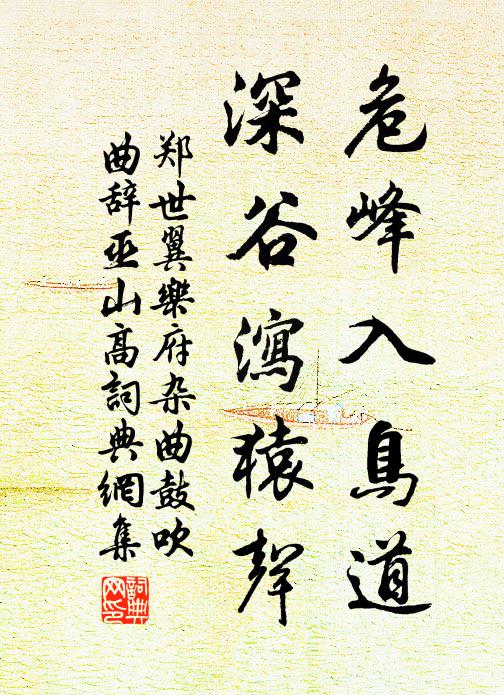 危峰入鳥道
深谷瀉猿聲
郑世翼樂府杂曲鼓吹
曲辞巫山高詞典網集
詞典
网印